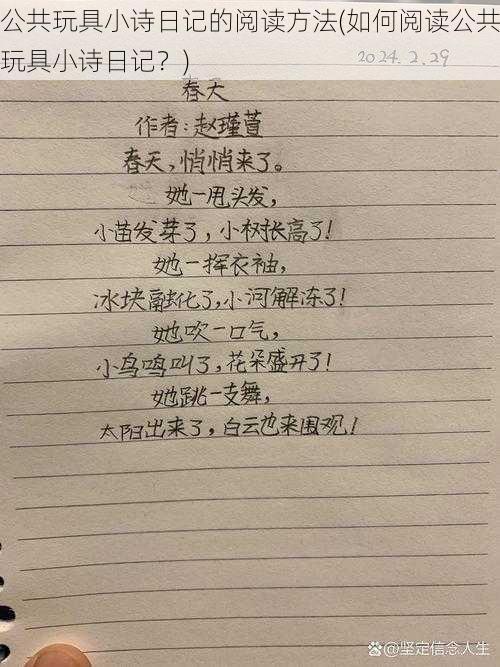 公共玩具小诗日记的阅读方法(如何阅读公共
玩具小诗日记？)
2024.2.29
春天
作者:赵瑾萱
春天,悄悄来了。
她一甩头发,
小苗发芽了,小树长高了!
她一挥衣袖,
冰块融化了,小河解冻了!
她吹一口气,
小鸟鸣叫了,花朵盛开了!
她跳一支舞,
太阳出来了,白云也来围观!
@坚定信念人生